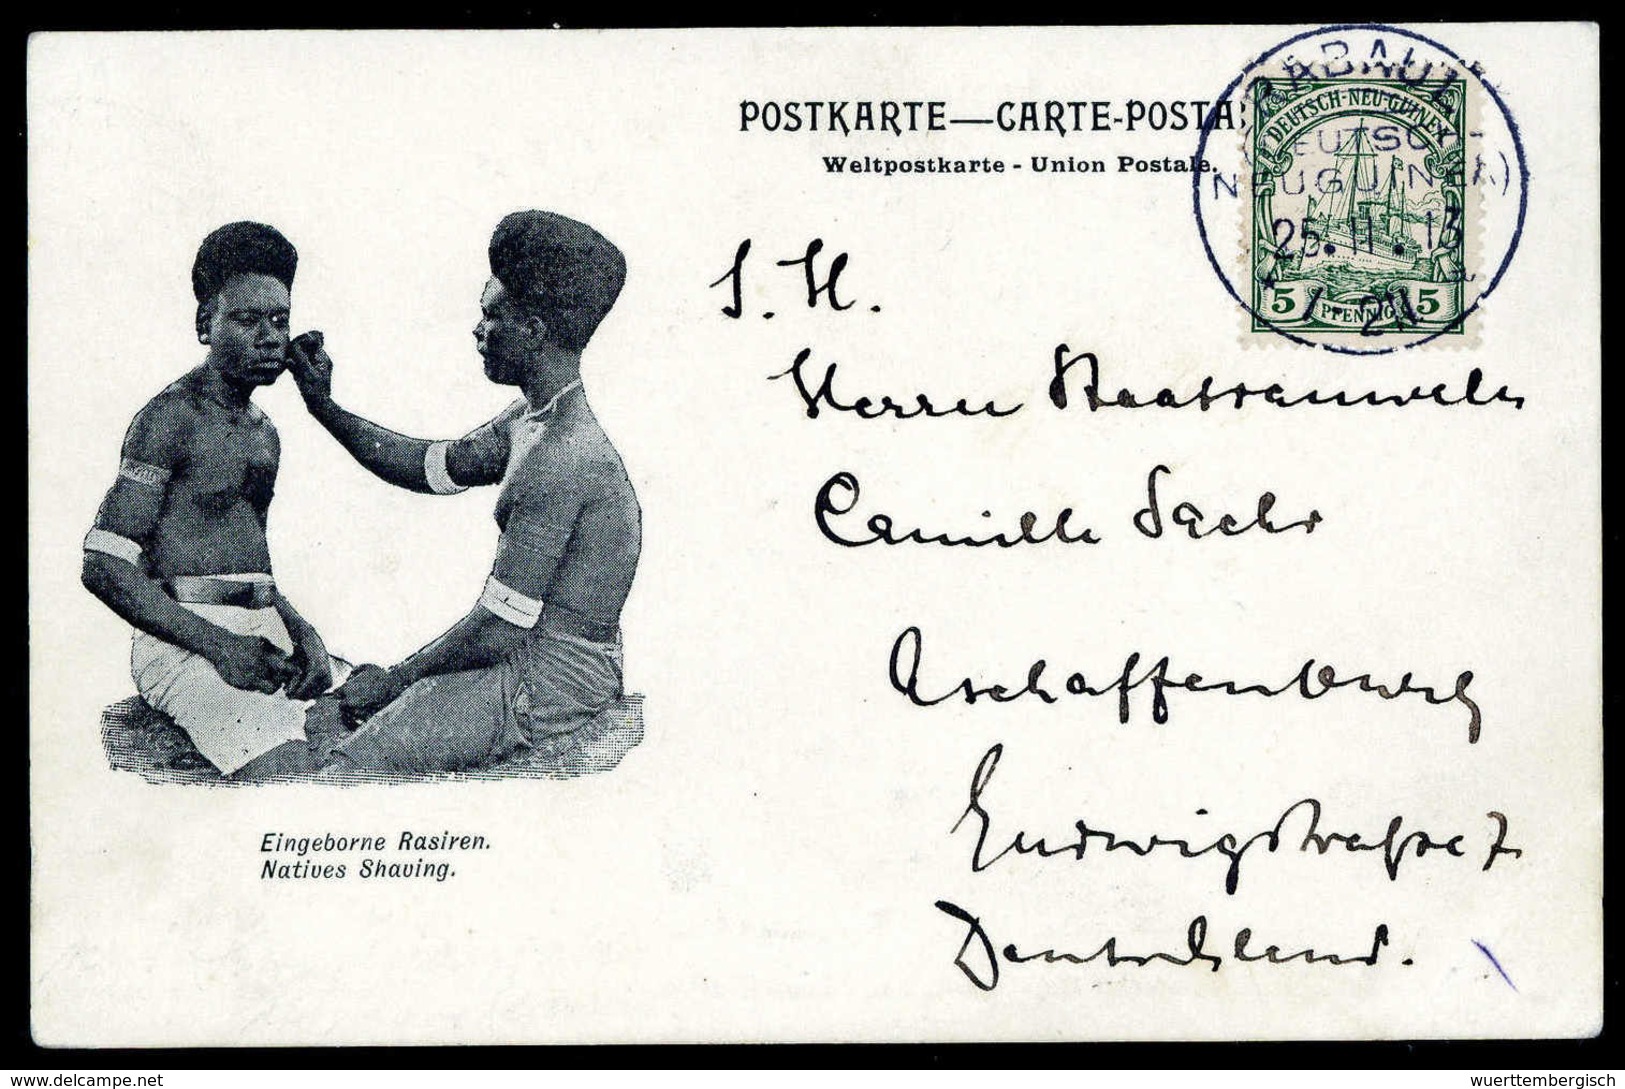 POSTKARTE—CARTE-POSTA
Weltpostkarte - Union Postale.
RABAUL
(DEUTSCH-
NEUGUINEA)
25.11.13
DEUTSCH-NEU-GUINEA
5 PFENNIG 5
S. H.
Herrn Staatsanwalt
Camille Sachs
Aschaffenburg
Ludwigstrasse 7
Deutschland.
Eingeborne Rasiren.
Natives Shaving.
wuerttembergisch
delcampe.net